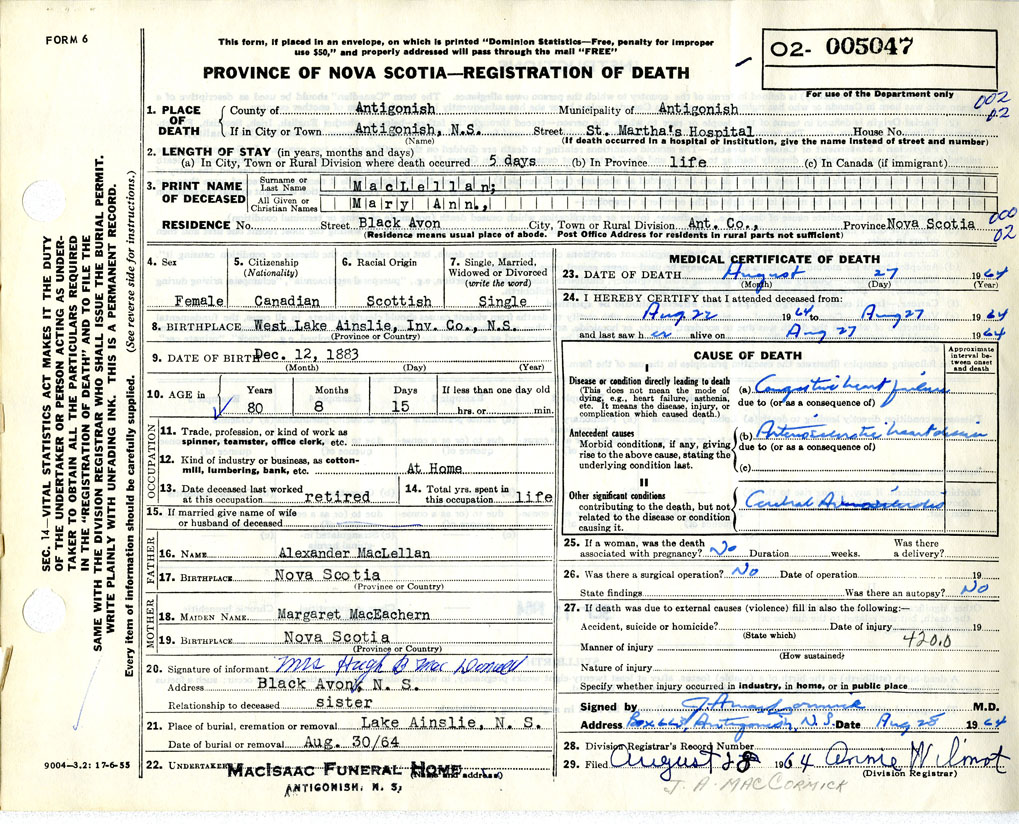 FORM 6
This form, if placed in an envelope, on which is printed "Dominion Statistics—Free, penalty for improper
use $50," and properly addressed will pass through the mail "FREE"
PROVINCE OF NOVA SCOTIA—REGISTRATION OF DEATH
02- 005047
For use of the Department only
002
02
SEC. 14—VITAL STATISTICS ACT MAKES IT THE DUTY
OF THE UNDERTAKER OR PERSON ACTING AS UNDER-
TAKER TO OBTAIN ALL THE PARTICULARS REQUIRED
IN THE "REGISTRATION OF DEATH" AND TO FILE THE
SAME WITH THE DIVISION REGISTRAR WHO SHALL ISSUE THE BURIAL PERMIT.
WRITE PLAINLY WITH UNFADING INK. THIS IS A PERMANENT RECORD.
Every item of information should be carefully supplied. (See reverse side for instructions.)
1. PLACE OF DEATH County of Antigonish Municipality of Antigonish
If in City or Town Antigonish, N.S. Street St. Martha's Hospital House No.
(Name) (If death occurred in a hospital of institution, give the name instead of street and number)
2. LENGTH OF STAY (in years, months and days)
(a) In City, Town or Rural Division where death occurred 5 days (b) In Province life (c) In Canada (if immigrant)
3. PRINT NAME OF DECEASED
Surname or Last Name MacLellan;
All Given or Christian Names Mary Ann.,
RESIDENCE No. Street Black Avon City, Town or Rural Division Ant. Co., Province Nova Scotia
(Residence means usual place of abode. Post Office Address for residents in rural parts not sufficient)
000
02
4. Sex Female
5. Citizenship (Nationality) Canadian
6. Racial Origin Scottish
7. Single, Married, Widowed or Divorced (write the word) Single
8. BIRTHPLACE West Lake Ainslie, Inv. Co., N.S.
(Province or Country)
9. DATE OF BIRTH Dec. 12, 1883
(Month) (Day) (Year)
10. AGE in Years 80 Months 8 Days 15 If less than one day old hrs. or min.
OCCUPATION
11. Trade, profession, or kind of work as
spinner, teamster, office clerk, etc.
12. Kind of industry or business, as cotton-
mill, lumbering, bank, etc. At Home
13. Date deceased last worked at this occupation retired
14. Total yrs. spent in this occupation life
15. If married give name of wife
or husband of deceased
FATHER
16. NAME Alexander MacLellan
17. BIRTHPLACE Nova Scotia
(Province or Country)
MOTHER
18. MAIDEN NAME Margaret MacEachern
19. BIRTHPLACE Nova Scotia
(Province or Country)
20. Signature of informant Mrs Hugh B Mac Donald
Address Black Avon, N. S.
Relationship to deceased sister
21. Place of burial, cremation or removal Lake Ainslie, N. S.
Date of burial or removal Aug. 30/64
22. UNDERTAKER MACISAAC FUNERAL HOME
(Name and address)
ANTIGONISH, N. S.
9004—3.2: 17-6-55
MEDICAL CERTIFICATE OF DEATH
23. DATE OF DEATH August 27 1964
(Month) (Day) (Year)
24. I HEREBY CERTIFY that I attended deceased from:
Aug 22 1964 to Aug 27 1964
and last saw her alive on Aug 27 1964
CAUSE OF DEATH
Approximate interval between onset and death
I
Disease or condition directly leading to death
(This does not mean the mode of
dying, e.g., heart failure, asthenia,
etc. It means the disease, injury, or
complication which caused death.)
(a) Congestive heart failure
due to (or as a consequence of)
Antecedent causes
Morbid conditions, if any, giving
rise to the above cause, stating the
underlying condition last.
(b) Arteriosclerotic heart disease
due to (or as a consequence of)
(c)
II
Other significant conditions
contributing to the death, but not
related to the disease or condition
causing it.
Cerebral Arteriosclerosis
25. If a woman, was the death
associated with pregnancy? No Duration weeks. Was there a delivery?
26. Was there a surgical operation? No Date of operation 19
State findings Was there an autopsy? No
27. If death was due to external causes (violence) fill in also the following:—
Accident, suicide or homicide? Date of injury 19
(State which)
Manner of injury 420.0
(How sustained)
Nature of injury
Specify whether injury occurred in industry, in home, or in public place
Signed by M.D.
Address Box 668, Antigonish, N.S. Date Aug 28 1964
28. Division Registrar's Record Number
29. Filed August 28 1964 Annie Wilmot
(Division Registrar)
J. A. MACCORMICK